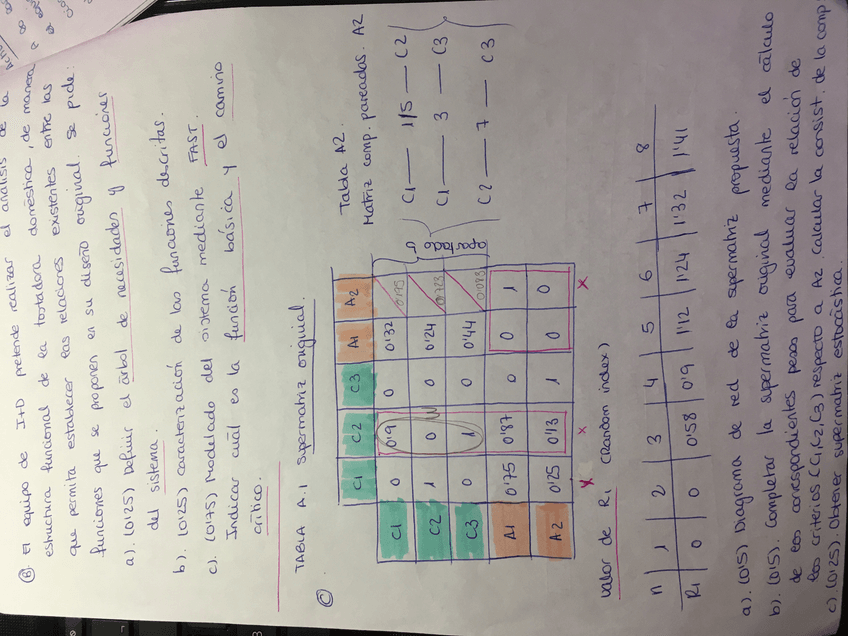 B. El equipo de I+D pretende realizar el análisis de la
estructura funcional de la tostadora doméstica, de manera
que permita establecer las relaciones existentes entre las
funciones que se proponen en su diseño original. Se pide:
a). (0'25) Definir el árbol de necesidades y funciones
del sistema.
b). (0'25) caracterización de las funciones descritas.
c). (0'75) Modelado del sistema mediante FAST.
Indicar cuál es la función básica y el camino
crítico.
C
TABLA A.1 Supermatriz original.
C1 C2 C3 A1 A2
C1 0 0'9 0 0'32
C2 1 0 0 0'24
C3 0 1 0 0'44
A1 0'75 0'87 0 0 1
A2 0'25 0'13 1 0 0
x x x
Tabla A2.
Matriz comp. pareadas. A2
C1 — 1/5 — C2
C1 — 3 — C3
C2 — 7 — C3
Valor de Ri (Random index)
n 1 2 3 4 5 6 7 8
Ri 0 0 0'58 0'9 1'12 1'24 1'32 1'41
a). (0'5) Diagrama de red de la supermatriz propuesta.
b). (0'5). Completar la supermatriz original mediante el cálculo
de los correspondientes pesos para evaluar la relación de
los criterios (C1, C2, C3) respecto a A2. Calcular la consist. de la comp.
c). (0'25). Obtener supermatriz estocástica.